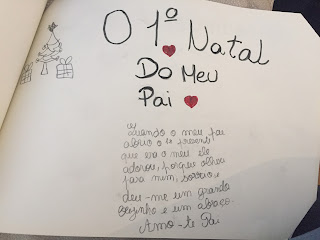 O 1º Natal
Do Meu
Pai
Quando o meu pai
abriu o 1º presente
que era o meu ele
adorou, porque olhou
para mim, sorriu e
deu-me um grande
beijinho e um abraço.
Amo-te Pai